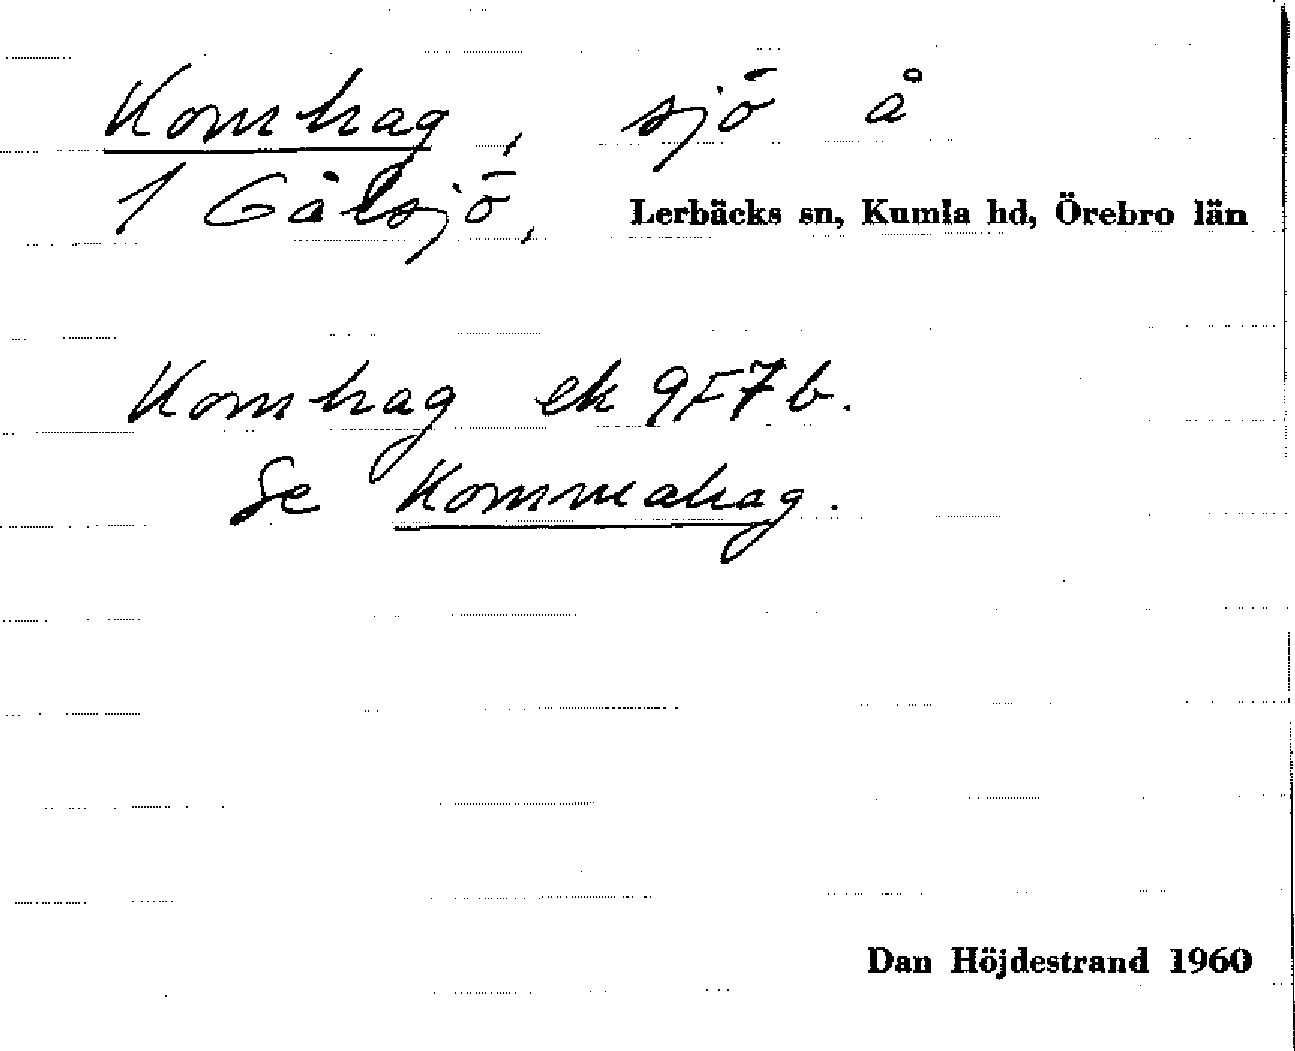 Komhag, sjö å
1 Gålsjö, Lerbäcks sn, Kumla hd, Örebro län
Komhag ek 9F7b.
Se Kommahag.
Dan Höjdestrand 1960